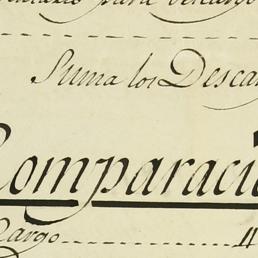 para
Suma los Desca
Comparació
Cargo